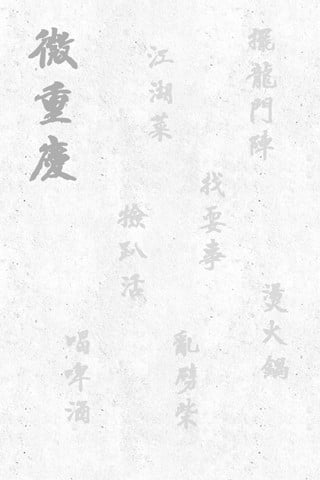 微重慶
擺龍門陣
燙火鍋
找耍事
亂劈柴
江湖菜
撿趴活